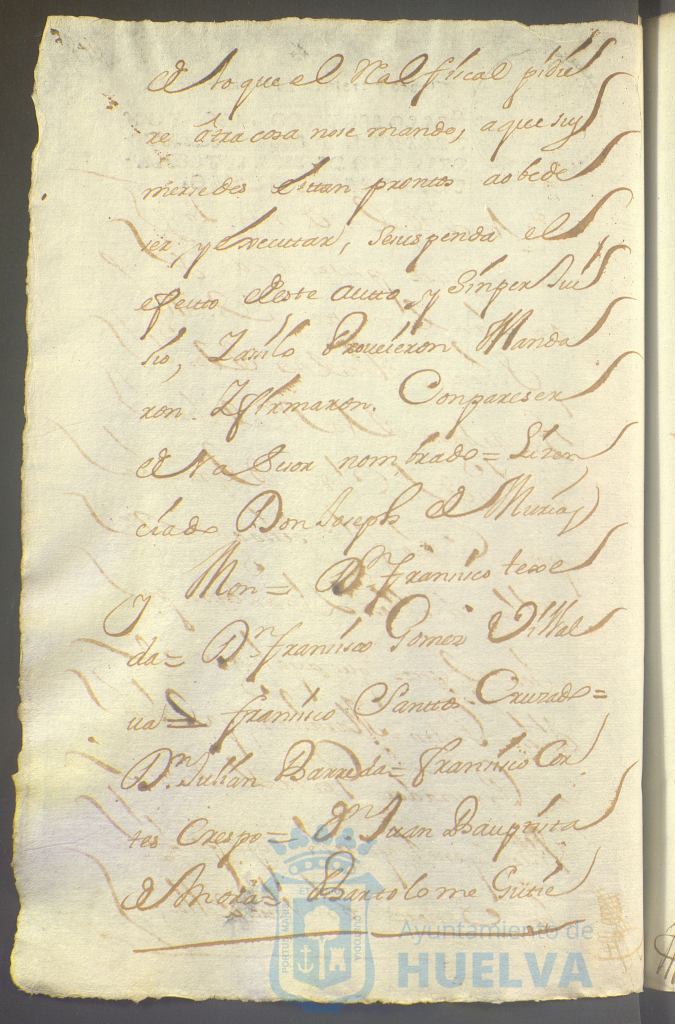 de lo que el Rl Fiscal pidie
re â otra cosa nose mando, aque suς
mersedes estan prontos aobede
ser, y executar, sesuspenda el
efecto deste autto, y sinper Jui
sio, y asilo Proveieron Manda
ron y firmaron. Conpareser
de el a Sesor nombrado = Lizen
ciado Don Joseph de Murias
y Mon = Dn. Francisco texe
da = Dn. Francisco Gomez Villal
va = Francisco Santtos Cruzado =
Dn. Julian Barreda = Francisco Cor
tes Crespo = Dn. Juan Bauptista
de Mora = Bartolome Gutie
Ayuntamiento de
HUELVA
PORTUS MARIS
CUSTODIA